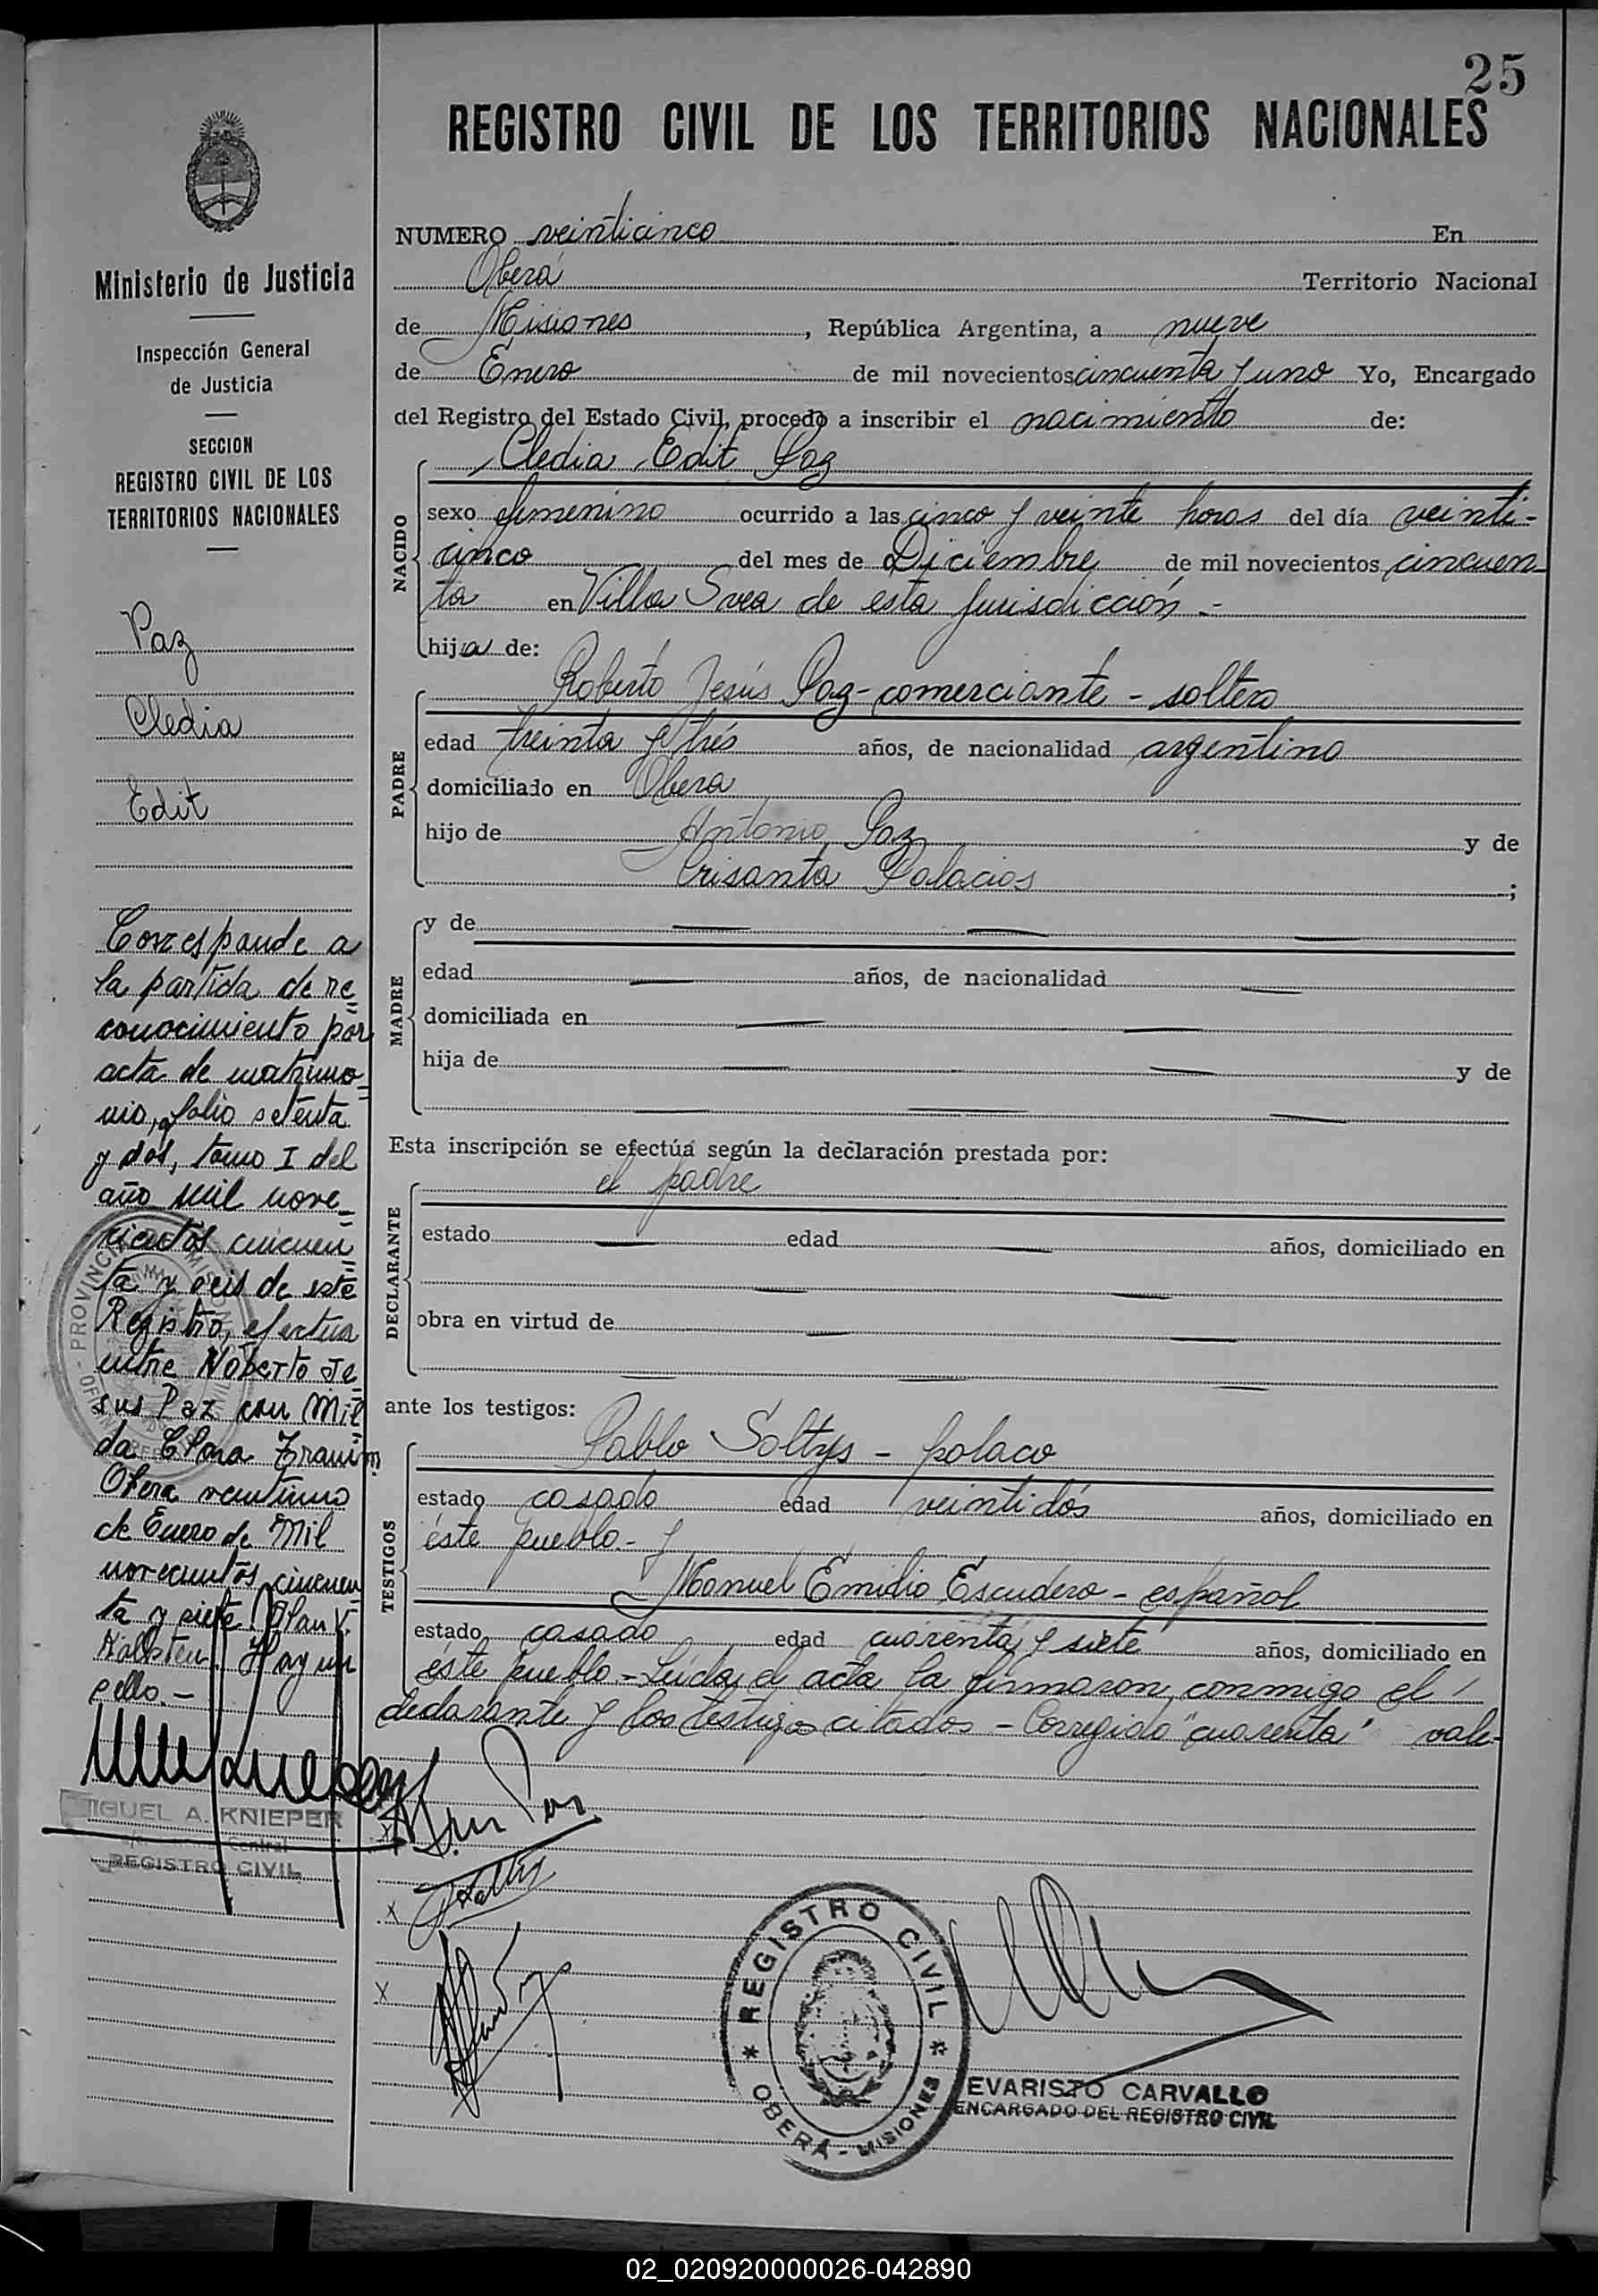 25
REGISTRO CIVIL DE LOS TERRITORIOS NACIONALES
Ministerio de Justicia
Inspección General
de Justicia
SECCION
REGISTRO CIVIL DE LOS
TERRITORIOS NACIONALES
Paz
Cledia
Edit
Corresponde a
la partida de re=
conocimiento por
acta de matrimo=
nio, folio setenta
y dos, tomo I del
año mil nove=
cientos cincuen
ta y seis de este
Registro, efectua
entre Noberto Je=
sus Paz con Mil=
da Elma
Obera veintiuno
de Enero de Mil
novecientos cincuen
ta y siete.
Kallsten. Hay un
sello.-
MIGUEL A. KNIEPER
REGISTRO CIVIL
NUMERO veinticinco En
Oberá Territorio Nacional
de Misiones, República Argentina, a nueve
de Enero de mil novecientos cincuenta y uno Yo, Encargado
del Registro del Estado Civil, procedo a inscribir el nacimiento de:
NACIDO
Cledia Edit Paz
sexo femenino ocurrido a las cinco y veinte horas del día veinti-
cinco del mes de Diciembre de mil novecientos cincuen-
ta en Villa Svea de esta jurisdicción.-
hija de:
PADRE
Roberto Jesús Paz - comerciante - soltero
edad treinta y tres años, de nacionalidad argentino
domiciliado en Obera
hijo de Antonio Paz y de
Crisanta Palacios ;
MADRE
y de
edad años, de nacionalidad
domiciliada en
hija de y de
Esta inscripción se efectúa según la declaración prestada por:
DECLARANTE
el padre
estado edad años, domiciliado en
obra en virtud de
ante los testigos:
TESTIGOS
Pablo Soltys - polaco
estado casado edad veintidós años, domiciliado en
éste pueblo.- y
Manuel Emidio Escudero - español
estado casado edad cuarenta y siete años, domiciliado en
éste pueblo - Leida el acta la firmaron conmigo el
declarante y los testigos citados - Corregido "cuarenta" vale-
REGISTRO CIVIL
OBERÁ - MISIONES
EVARISTO CARVALLO
ENCARGADO DEL REGISTRO CIVIL
02_020920000026-042890